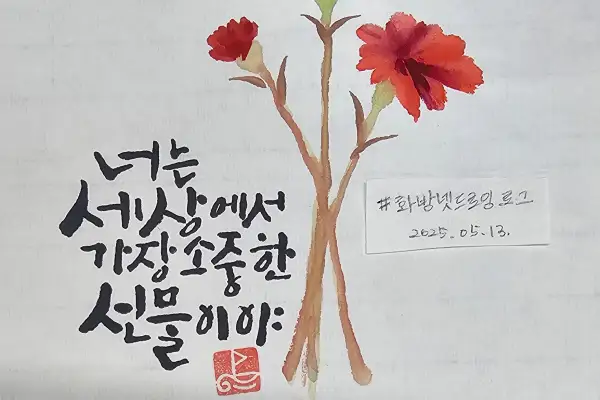 너는
세상에서
가장 소중한
선물이야
#화방넷드로잉로그
2025.05.13.